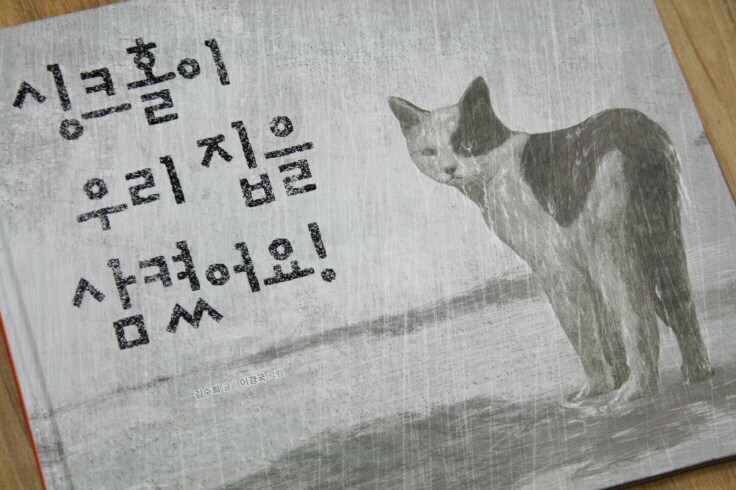 싱크홀이
우리 집을
삼켰어요!
김수희 글 이경국 그림